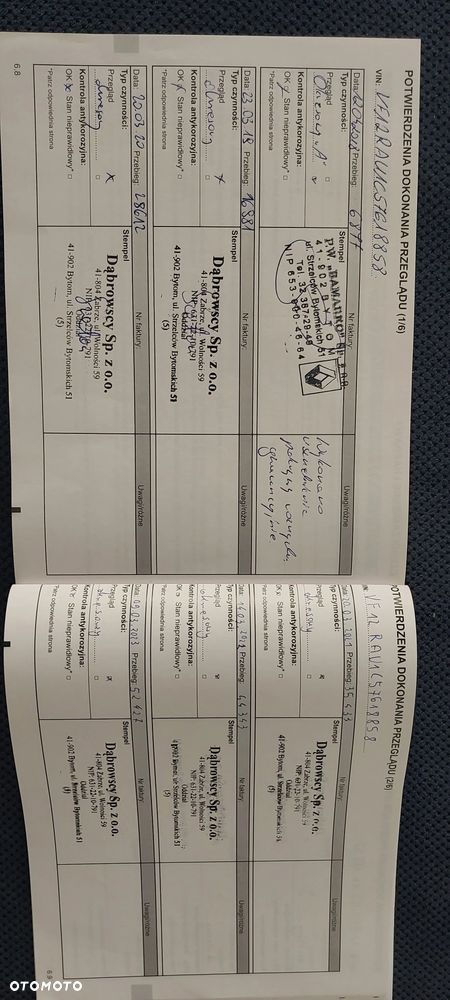 POTWIERDZENIA DOKONANIA PRZEGLĄDU (1/6)
VIN: VF12RAV1C57618858
Data: Przebieg: 6877
Typ czynności: Stempel Nr faktury: Uwagi/różne
Przegląd
Okresowy "A"
Kontrola antykorozyjna:
OK Stan nieprawidłowy*
*Patrz odpowiednia strona
P.W. "DAMARKO"
41-902 BYTOM
ul. Strzelców Bytomskich 51
Tel. 32 387-28-48
Wykonano
Data: 23 03 19 Przebieg: 16981
Typ czynności: Stempel Nr faktury: Uwagi/różne
Przegląd
okresowy
Kontrola antykorozyjna:
OK Stan nieprawidłowy*
*Patrz odpowiednia strona
Dąbrowscy Sp. z o.o.
41-804 Zabrze, ul. Wolności 59
NIP: 631-22-10-791
Oddział
41-902 Bytom, ul. Strzelców Bytomskich 51
(5)
Data: 20 03 20 Przebieg: 28612
Typ czynności: Stempel Nr faktury: Uwagi/różne
Przegląd
okresowy
Kontrola antykorozyjna:
OK Stan nieprawidłowy*
*Patrz odpowiednia strona
Dąbrowscy Sp. z o.o.
41-804 Zabrze, ul. Wolności 59
41-902 Bytom, ul. Strzelców Bytomskich 51
(5)
6.8
POTWIERDZENIA DOKONANIA PRZEGLĄDU (2/6)
VIN: VF12RAV1C57618858
Data: 20.03.2021 Przebieg: 35433
Typ czynności: Stempel Nr faktury: Uwagi/różne
Przegląd
okresowy
Kontrola antykorozyjna:
OK Stan nieprawidłowy*
*Patrz odpowiednia strona
Dąbrowscy Sp. z o.o.
41-804 Zabrze, ul. Wolności 59
NIP: 631-22-10-791
Oddział
41-902 Bytom, ul. Strzelców Bytomskich 51
(5)
Data: Przebieg: 44343
Typ czynności: Stempel Nr faktury: Uwagi/różne
Przegląd
okresowy
Kontrola antykorozyjna:
OK Stan nieprawidłowy*
*Patrz odpowiednia strona
Dąbrowscy Sp. z o.o.
41-804 Zabrze, ul. Wolności 59
NIP: 631-22-10-791
Oddział
41-902 Bytom, ul. Strzelców Bytomskich 51
(5)
Data: 09.03.2023 Przebieg: 52427
Typ czynności: Stempel Nr faktury: Uwagi/różne
Przegląd
okresowy
Kontrola antykorozyjna:
OK Stan nieprawidłowy*
*Patrz odpowiednia strona
Dąbrowscy Sp. z o.o.
41-804 Zabrze, ul. Wolności 59
NIP: 631-22-10-791
Oddział
41-902 Bytom, ul. Strzelców Bytomskich 51
(5)
6.9
OTOMOTO